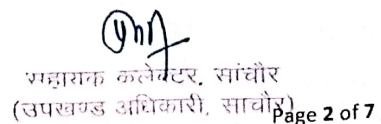 सहायक कलेक्टर, सांचौर
(उपखण्ड अधिकारी, सांचौर)
Page 2 of 7